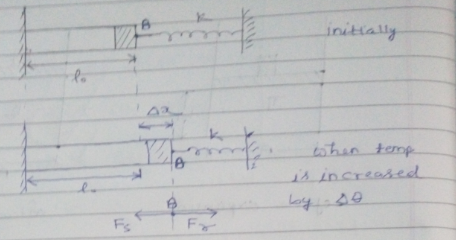 B
K
initially
l₀
Δx
K
B
when temp
is increased
by Δθ
l₀
B
Fs
Fr